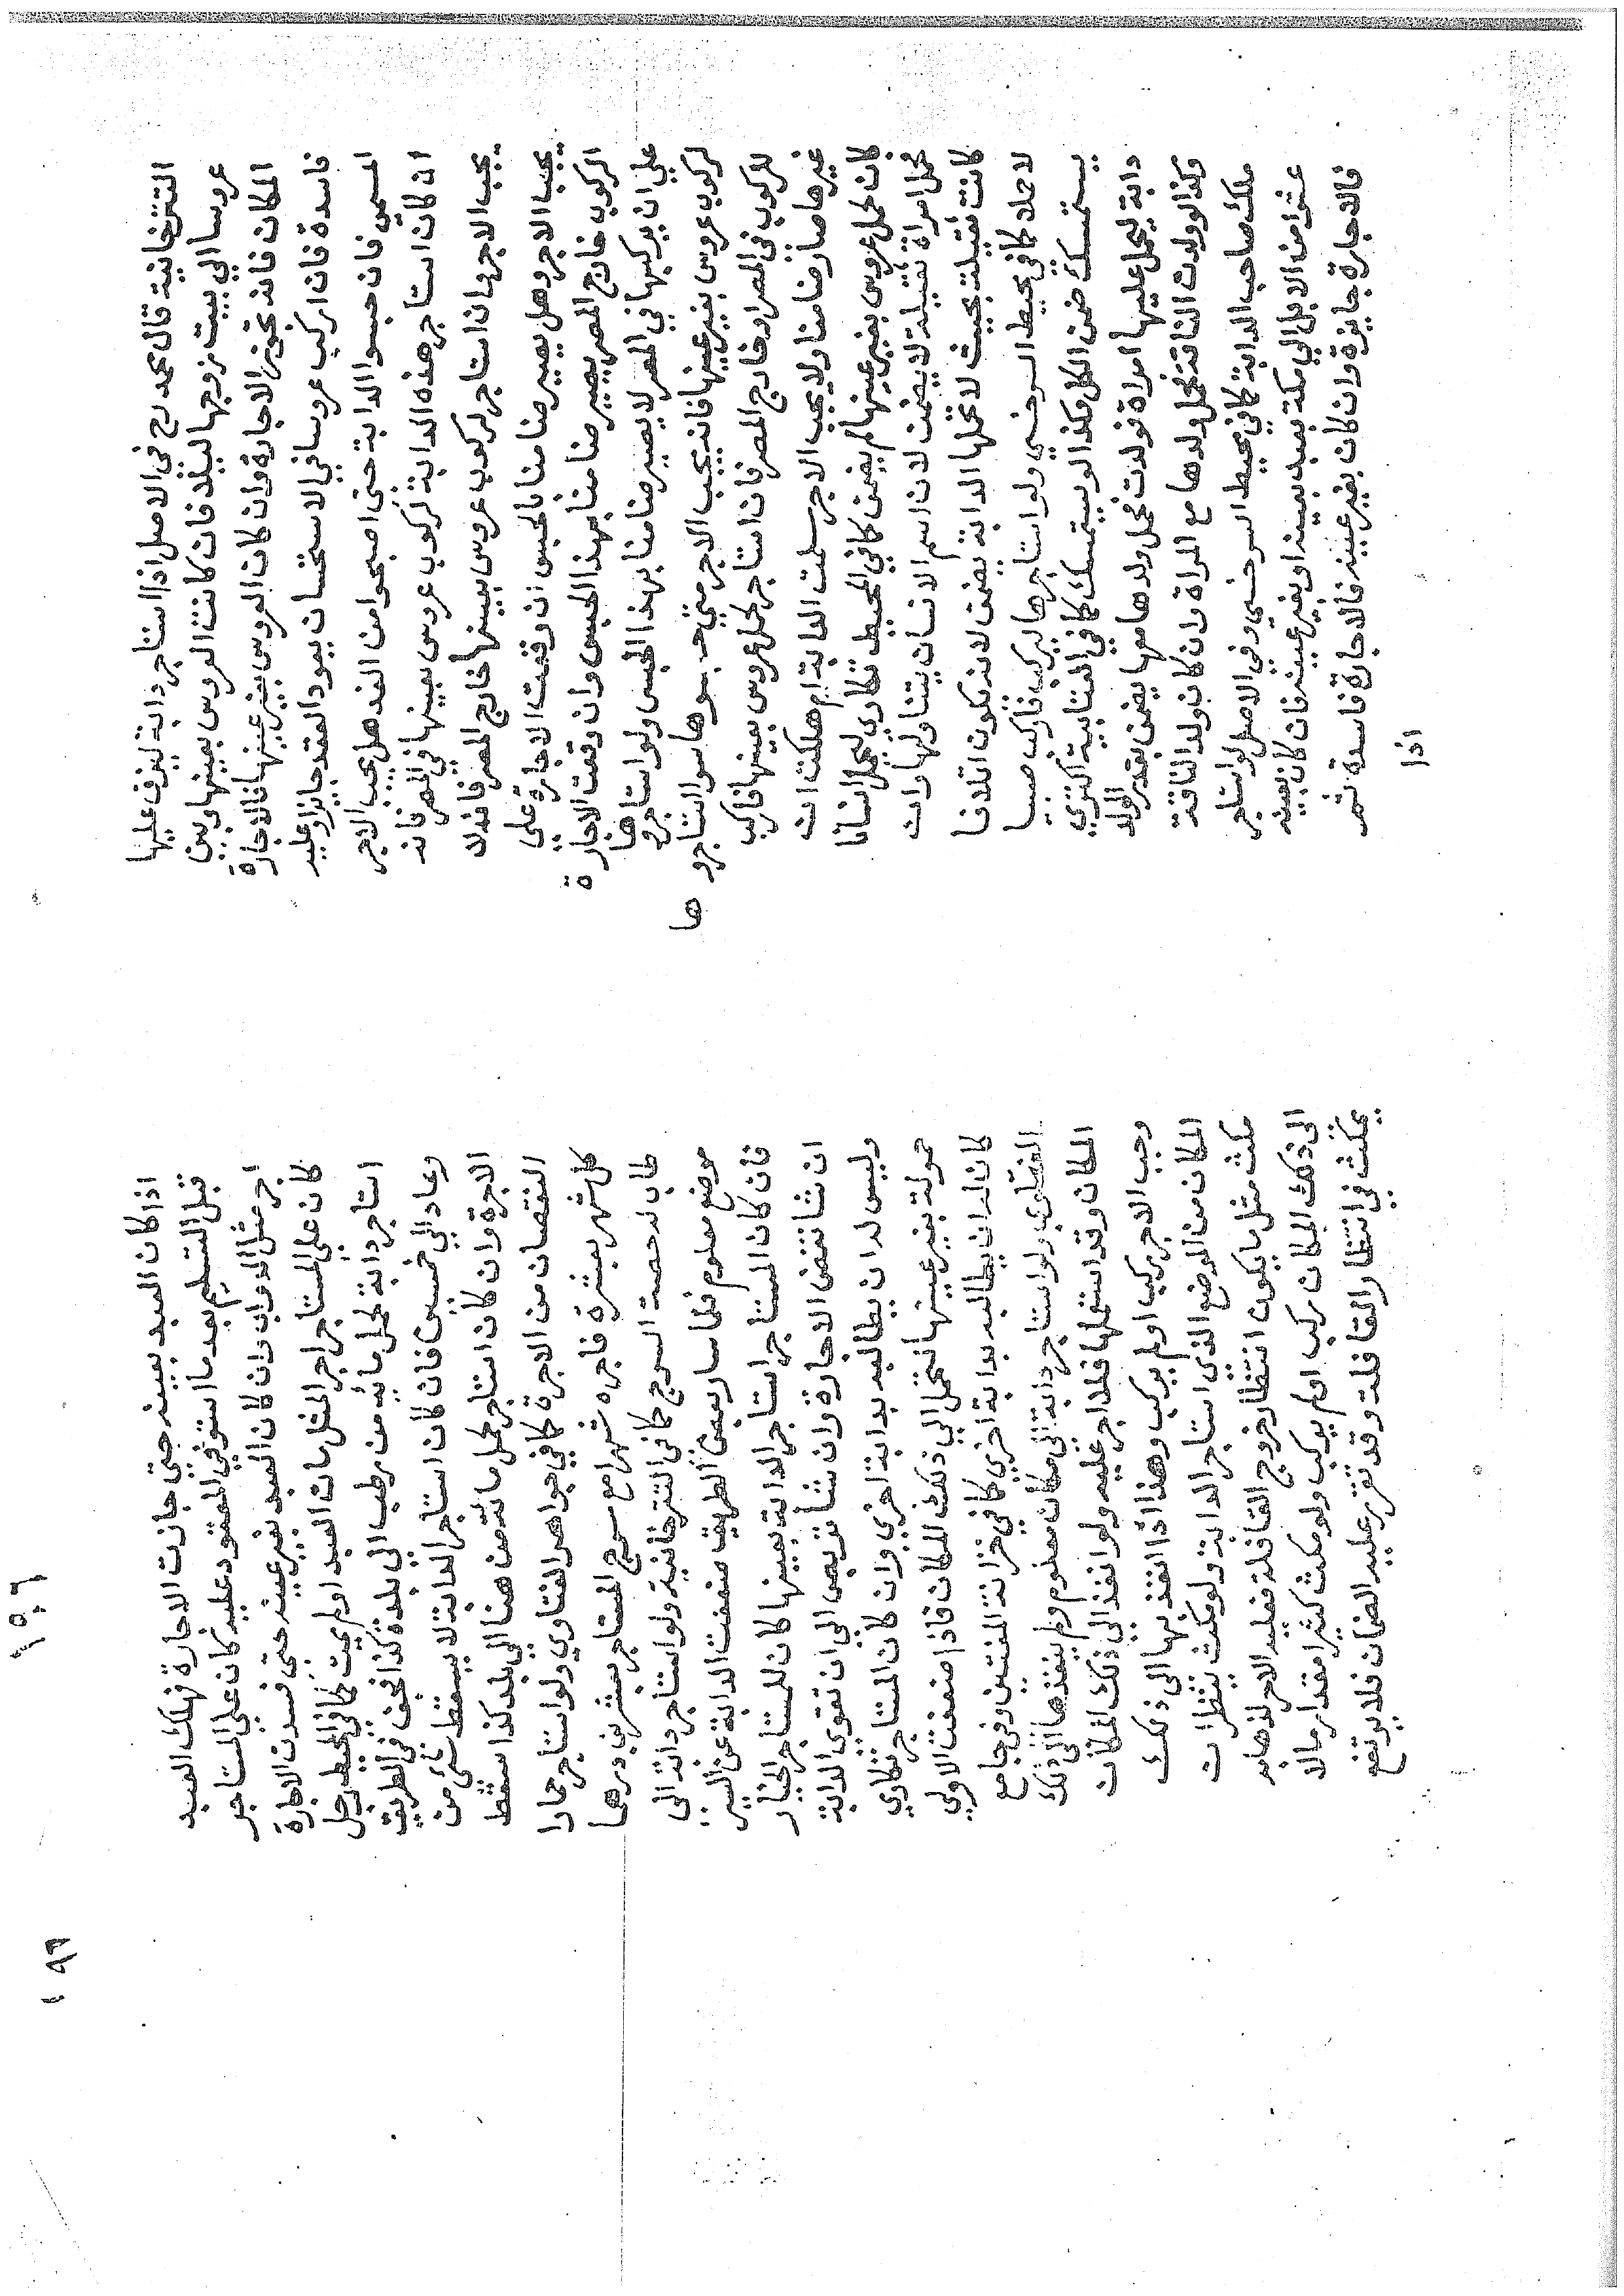 التترخانية قال محمد رح في الاصل اذا استاجر دابة ليزف عليها
عروسا الي بيت زوجها ليلا فان كانت العروس بعينها وبين
المكان فانه تجوز الاجارة وان كان العروس بغير عينها فالاجارة
فاسدة فان اركب عروسا في الاستحسان يعود العقد جائزا وعليه
المسمي فان حبسوا الدابة حتي اصبحوا من الغد هل يجب الاجر
ان كان استاجر هذه الدابة لركوب عروس بعينها في المصر فانه
يجب الاجر وان استاجر لركوب عروس بعينها خارج المصر فانه لا
يجب الاجر وهل يصير ضامنا بالحبس ان وقعت الاجارة علي
الركوب خارج المصر يصير ضامنا بهذا الحبس وان وقعت الاجارة
علي ان يركبها في المصر لا يصير ضامنا بهذا الحبس ولو استاجروها
لركوب عروس بغير عينها فانه يجب الاجر متي حبسوها سوا استاجروها
للركوب في المصر او خارج المصر فان استاجر لحمل عروس بعينها فاركب
غيرها صار ضامنا ولا يجب الاجر سلمت الدابة ام هلكت ان
كان لحمل عروس بغير عينها لم يضمن كما في المحيط تكاري ليحمل انسانا
فحمل امراة ثقيلة لا يضمن لان اسم الانسان يتناولها وان
كانت ثقيلة بحيث لا تحملها الدابة يضمن لانه تكون اتلافا
لا حملا كما في محيط السرخسي ولو استاجرها ليركب فاركب صبيا
يستمسك ضمن الكل وكذا لو يستمسك كما في الغياثية اكتري
دابة ليحمل عليها امراة فولدت فحمل ولدها معها يضمن بقدر الولد
وكذا لو ولدت الناقة فحمل ولدها مع المراة وان كان ولد الناقة
ملك صاحب الدابة كما في محيط السرخسي وفي الاصل لو استاجر
عشرا من الابل الي مكة بعبد بعينه او بغير عينه فان كان بعينه
فالاجارة جايزة وان كان بغير عينه فالاجارة فاسدة ثم
اذا
١٥٦
١٩٦
اذا كان العبد بعينه حتي جازت الاجارة فهلك العبد
قبل التسليم بعد ما استوفي المعقود عليه كان علي المستاجر
اجر مثل الدواب وان كان العبد بغير عينه حتي فسدت الاجارة
كان علي المستاجر اجر المثل مات العبد او لم يمت كما في المحيط رجل
استاجر دابة لحمل ماية من رطب الي بلدة كذا فجف في الطريق
وعاد الي خمسين فان كان استاجر الدابة لا يسقط شيء من
الاجرة وان كان استاجر لحمل مائة من هنا الي بلد كذا سقط
النقصان من الاجرة كما في جواهر الفتاوي ولو استاجر حمارا
كل شهر بعشرة فاجره شهرا مع سرج المستاجر بعشرين درهما
طاب له حصة السرج كما في التترخانية ولو استاجر دابة الي
موضع معلوم فلما سار بعض الطريق ضعفت الدابة عن السير
فان كان المستاجر استاجر الدابة بعينها كان للمستاجر الخيار
ان شا نقض الاجارة وان شا تربص الي ان تقوي الدابة
وليس له ان يطالبه بدابة اخري وان كان المستاجر تكاري
حمولة بغير عينها لتحمل الي ذلك المكان فاذا ضعفت الاولي
كان له ان يطالبه بدابة اخري كما في خزانة المفتين وفي جامع
الفتاوي ولو استاجر دابة الي مكان معلوم ولم ينفذها الي ذلك
المكان وقد استعملها فلا اجر عليه ولو انفذ الي ذلك المكان
وجب الاجر ركب او لم يركب وهذا اذا انفذ بها الي ذلك
المكان من الموضع الذي استاجر الدابة ولو مكث ينتظر ان
مكث مثل ما يكون انتظار خروج القافلة فعليه الاجر لذهابه
الي ذلك المكان ركب او لم يركب ولو مكث كثيرا مقدار ما لا
يمكث في انتظار القافلة وقد تقرر عليه الضمان فلا يرتفع